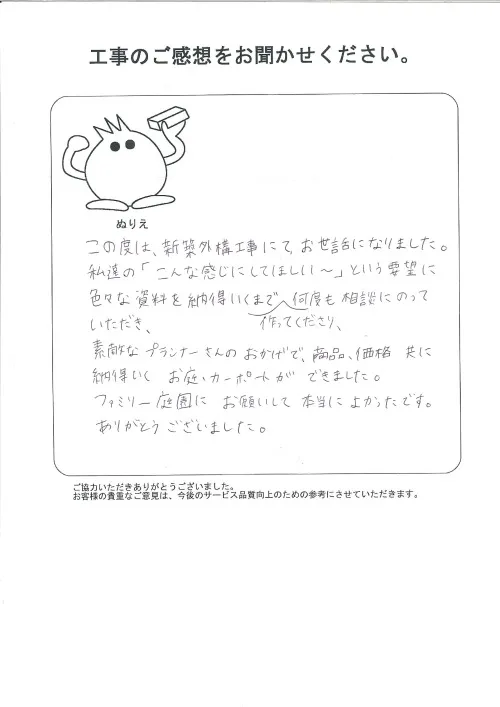 工事のご感想をお聞かせください。
ぬりえ
この度は、新築外構工事にて、お世話になりました。
私達の「こんな感じにしてほしい～」という要望に
色々な資料を納得いくまで何度も相談にのって
作ってくださり、
いただき、
素敵なプランナーさんのおかげで、商品、価格 共に
納得いく お庭・カーポートが できました。
ファミリー庭園に お願いして 本当に よかったです。
ありがとう ございました。
ご協力いただきありがとうございました。
お客様の貴重なご意見は、今後のサービス品質向上のための参考にさせていただきます。